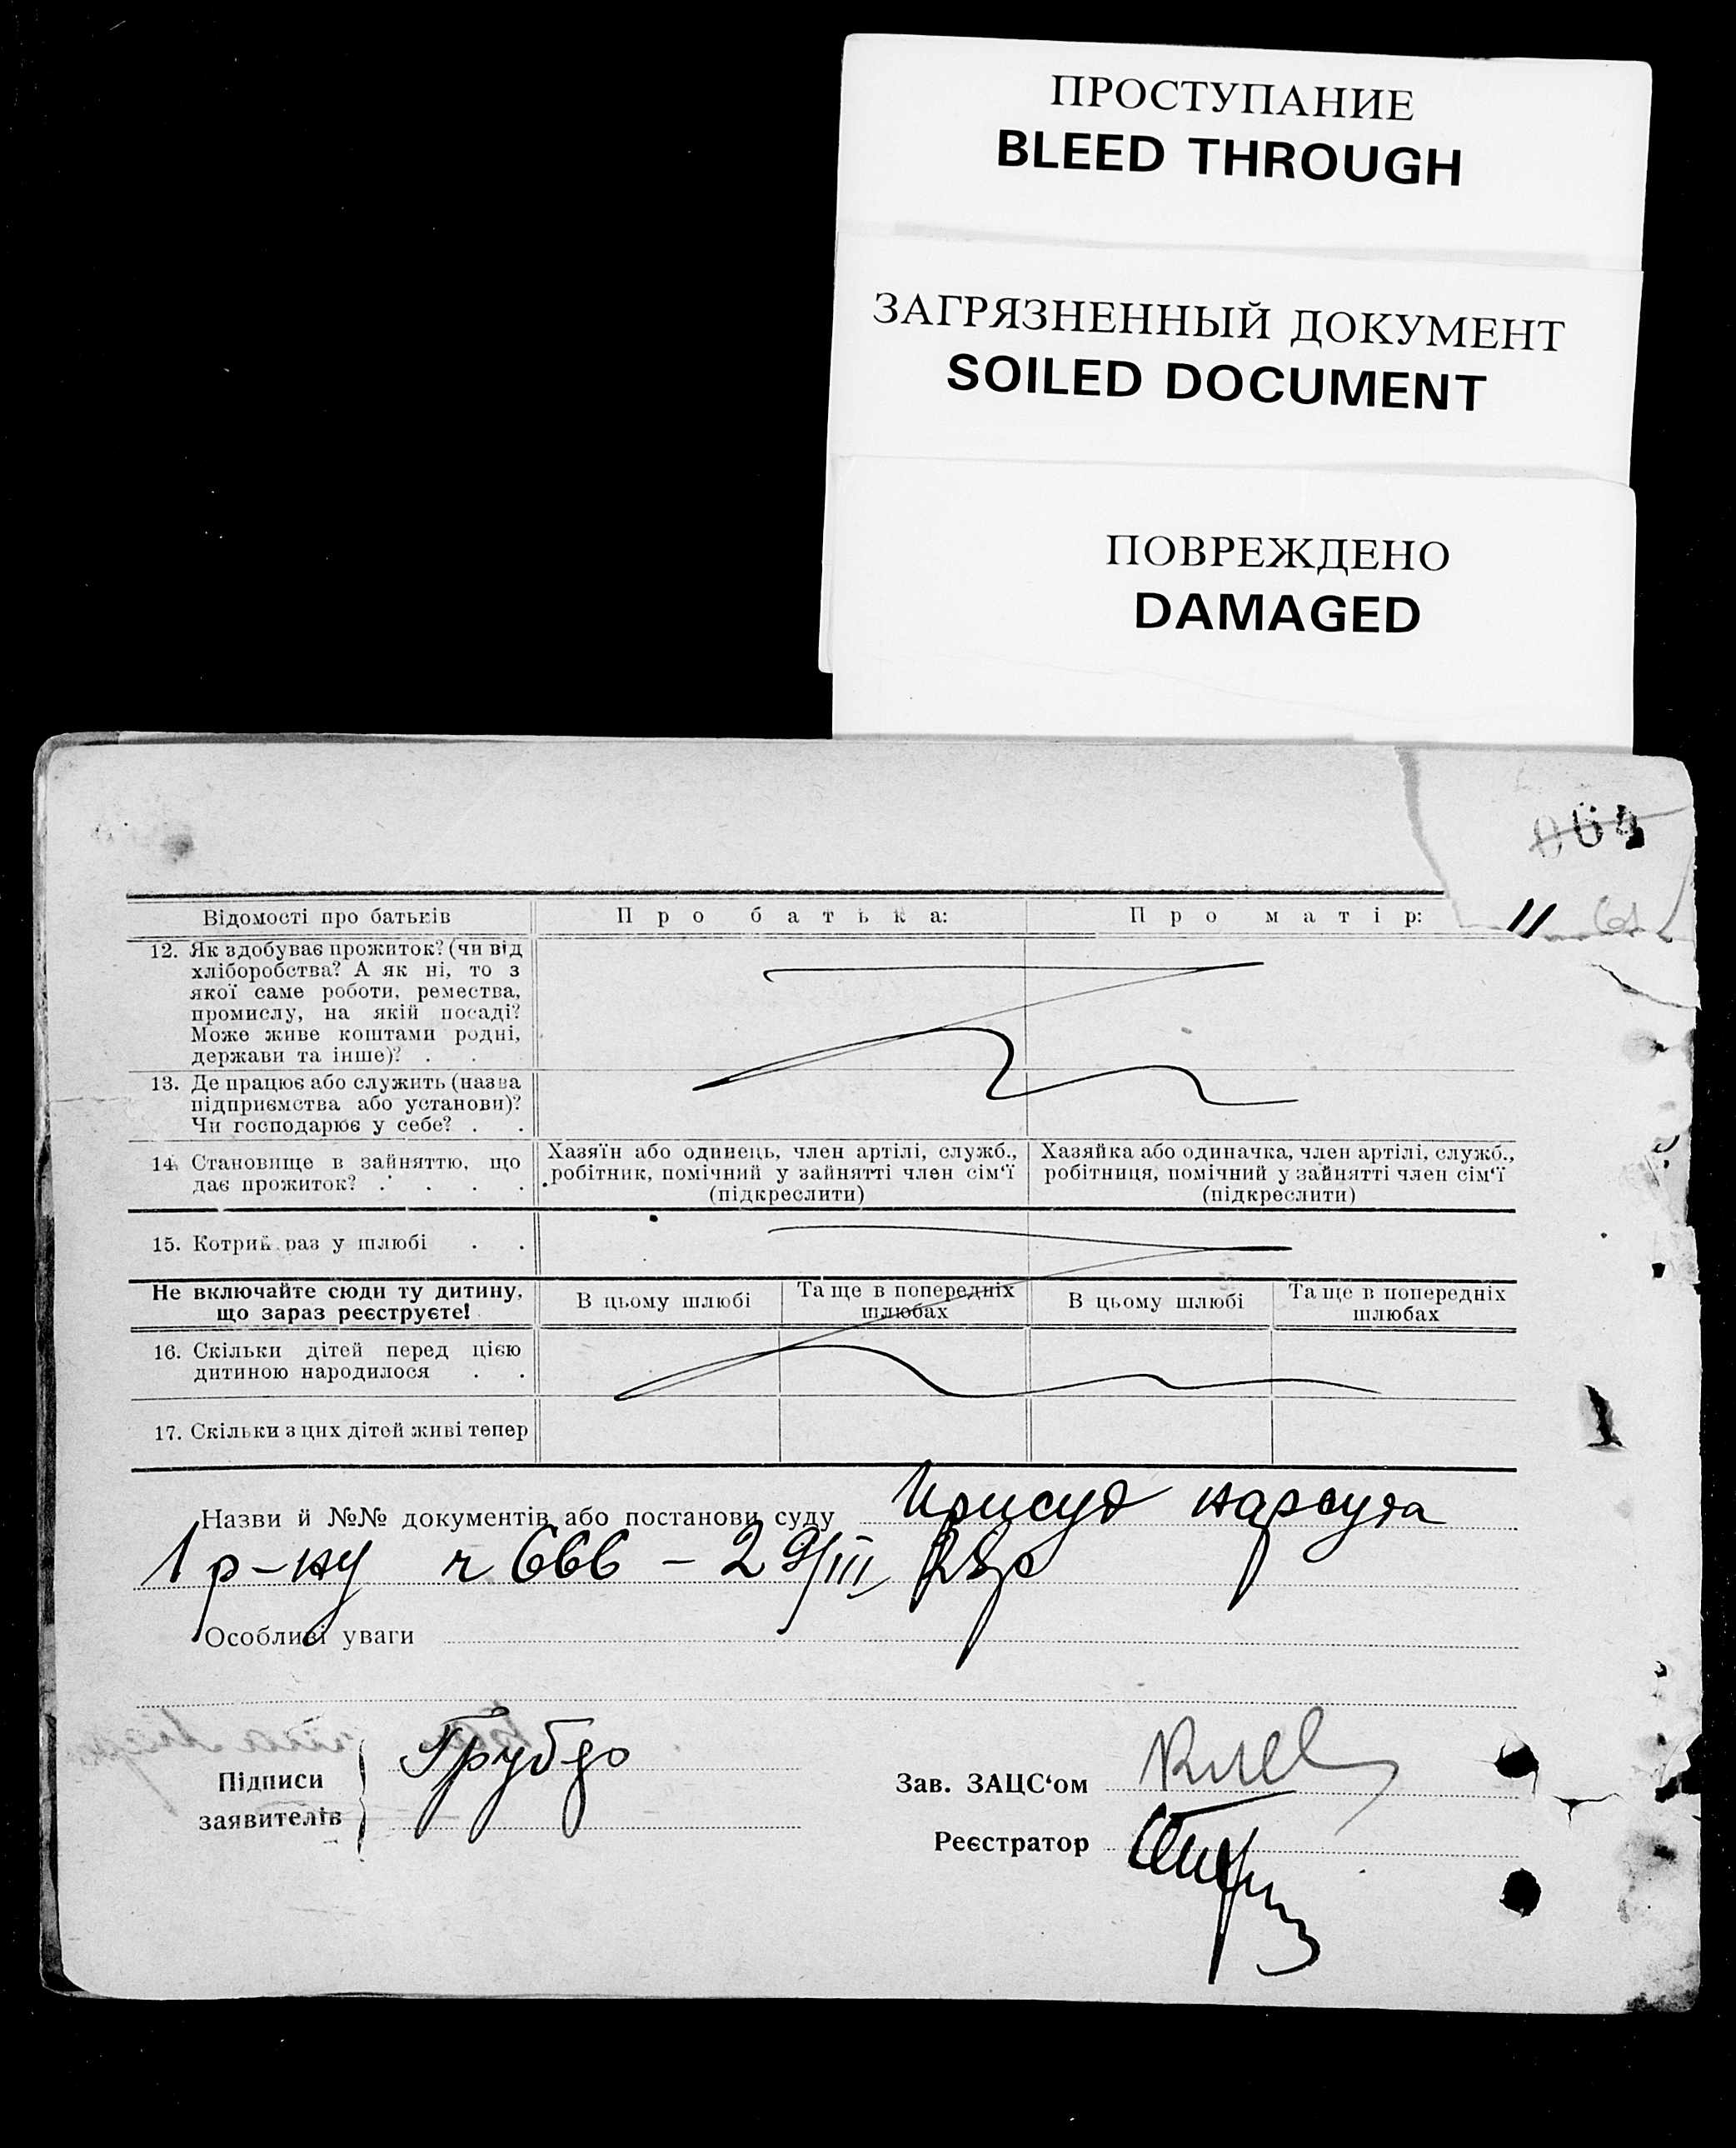 ПРОСТУПАНИЕ
BLEED THROUGH
ЗАГРЯЗНЕННЫЙ ДОКУМЕНТ
SOILED DOCUMENT
ПОВРЕЖДЕНО
DAMAGED
064
11
Відомості про батьків Про батька: Про матір:
12. Як здобуває прожиток? (чи від
хліборобства? А як ні, то з
якої саме роботи, ремества,
промислу, на якій посаді?
Може живе коштами родні,
держави та інше)? .
13. Де працює або служить (назва
підприємства або установи)?
Чи господарює у себе? . .
14. Становище в зайняттю, що
дає прожиток? . . . .
Хазяїн або одинець, член артілі, служб.,
робітник, помічний у зайнятті член сім‘ї
(підкреслити)
Хазяйка або одиначка, член артілі, служб.,
робітниця, помічний у зайнятті член сім‘ї
(підкреслити)
15. Котрий раз у шлюбі . .
Не включайте сюди ту дитину,
що зараз реєструєте!
В цьому шлюбі
Та ще в попередніх
шлюбах
В цьому шлюбі
Та ще в попередніх
шлюбах
16. Скільки дітей перед цією
дитиною народилося . .
17. Скільки з цих дітей живі тепер
Назви й №№ документів або постанови суду Присуд нарсуда
1 р-ну ч 666 – 29/III 28р
Особливі уваги
Підписи
заявителів
Зав. ЗАЦС‘ом
Реєстратор